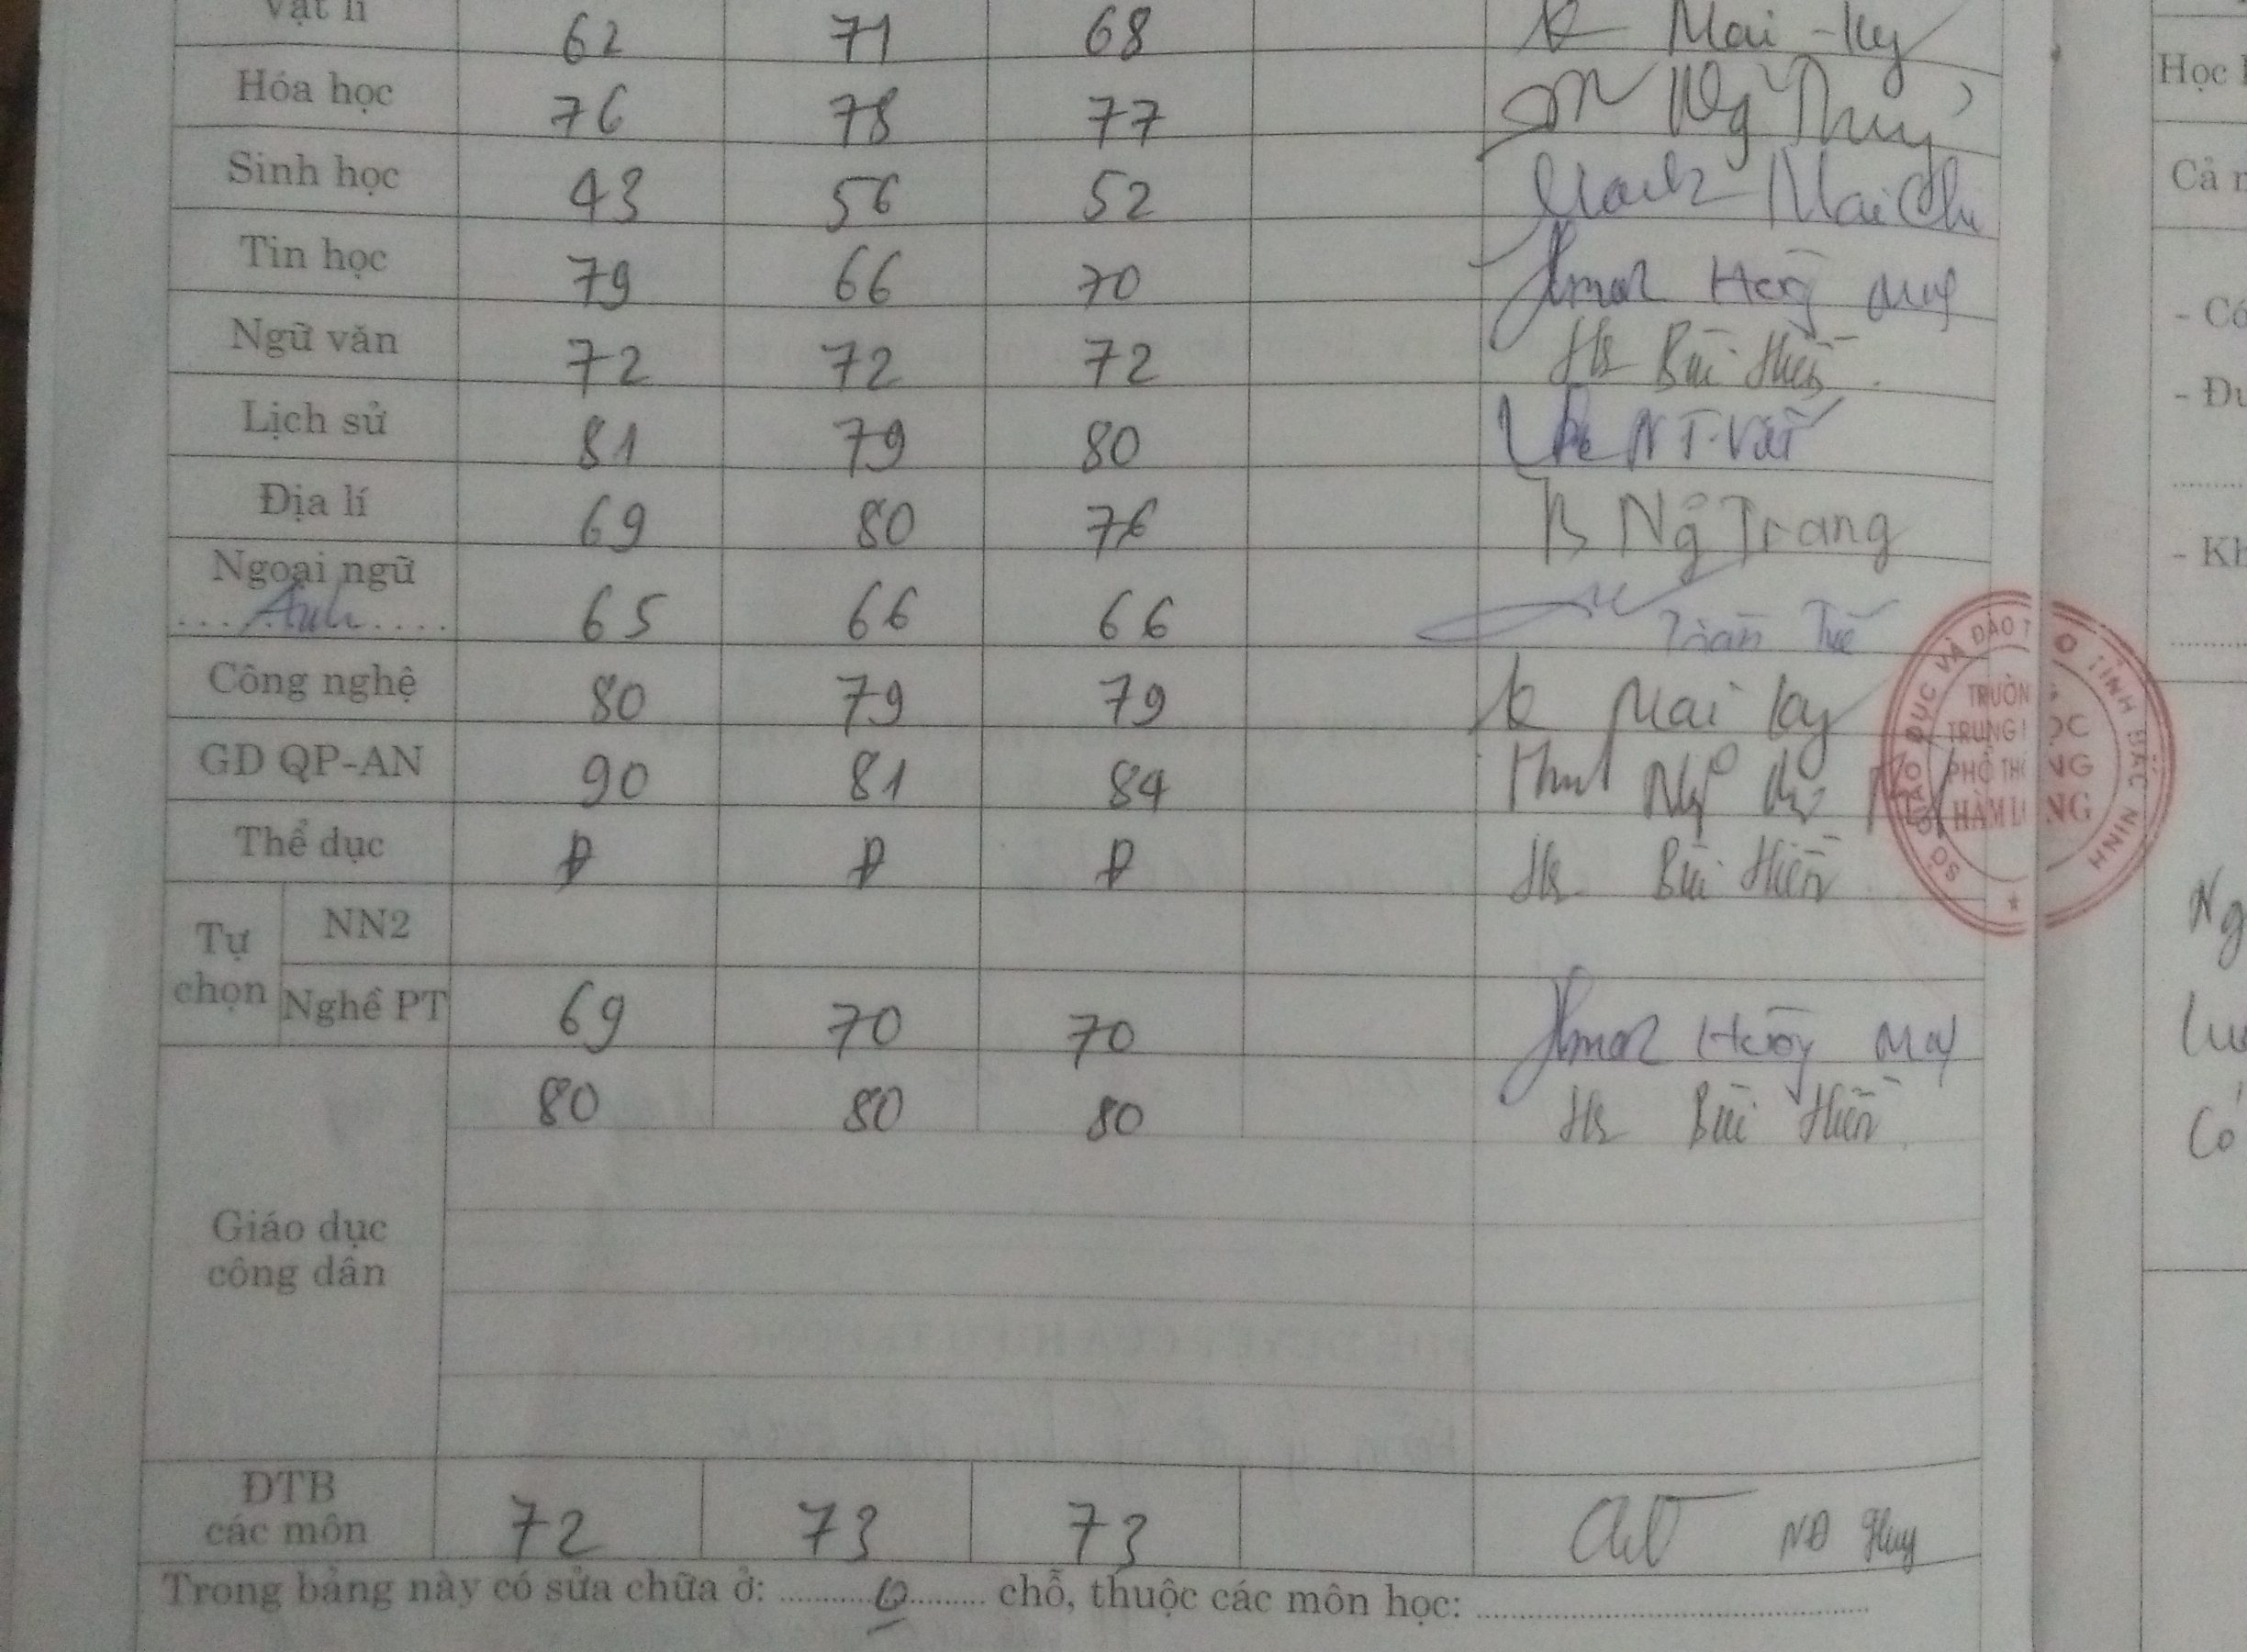 Vật lí 62 71 68 Mai Ky
Hóa học 76 78 77 Ng Thuỷ
Sinh học 43 56 52 Mai Chi
Tin học 79 66 70
Ngữ văn 72 72 72 Bùi Hiền
Lịch sử 81 79 80
Địa lí 69 80 76 Ng Trang
Ngoại ngữ
Anh 65 66 66 Trần
Công nghệ 80 79 79 Mai Ky
GD QP-AN 90 81 84
Thể dục Đ Đ Đ Bùi Hiền
Tự chọn
NN2
Nghề PT 69 70 70
80 80 80 Bùi Hiền
Giáo dục
công dân
ĐTB
các môn 72 73 73 NĐ Huy
Trong bảng này có sửa chữa ở: 0 chỗ, thuộc các môn học:
SỞ GIÁO DỤC VÀ ĐÀO T O TỈNH BẮC NINH
TRƯỜN
TRUNG HỌC
PHỔ THÔNG
HÀM LONG
Học
Cả
- Có
- Đư
- Kh
Có